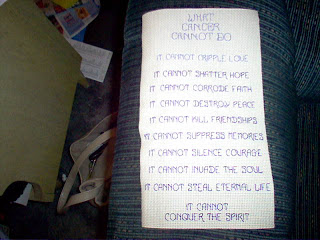 WHAT
CANCER
CANNOT DO
IT CANNOT CRIPPLE LOVE
IT CANNOT SHATTER HOPE
IT CANNOT CORRODE FAITH
IT CANNOT DESTROY PEACE
IT CANNOT KILL FRIENDSHIPS
IT CANNOT SUPPRESS MEMORIES
IT CANNOT SILENCE COURAGE
IT CANNOT INVADE THE SOUL
IT CANNOT STEAL ETERNAL LIFE
IT CANNOT
CONQUER THE SPIRIT